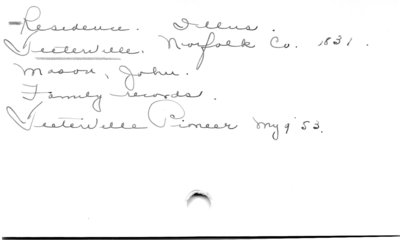 Residence. Illus.
Teeterville. Norfolk Co. 1831.
Mason, John.
Family records.
Teeterville Pioneer My 9 '53.